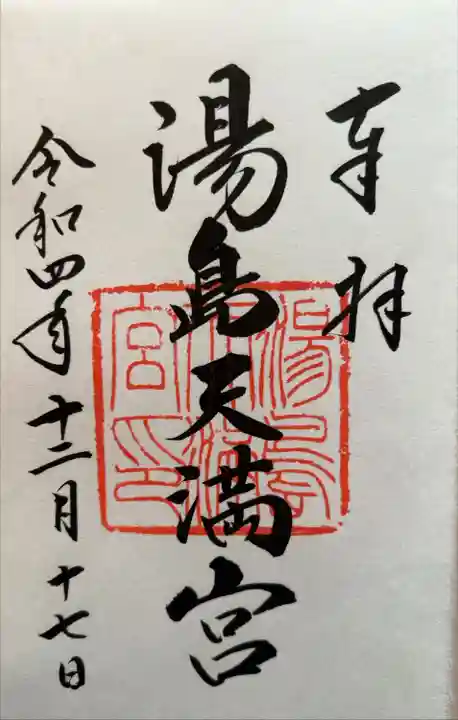 奉拝
湯島天満宮
令和四年十二月十七日
湯島天満宮印